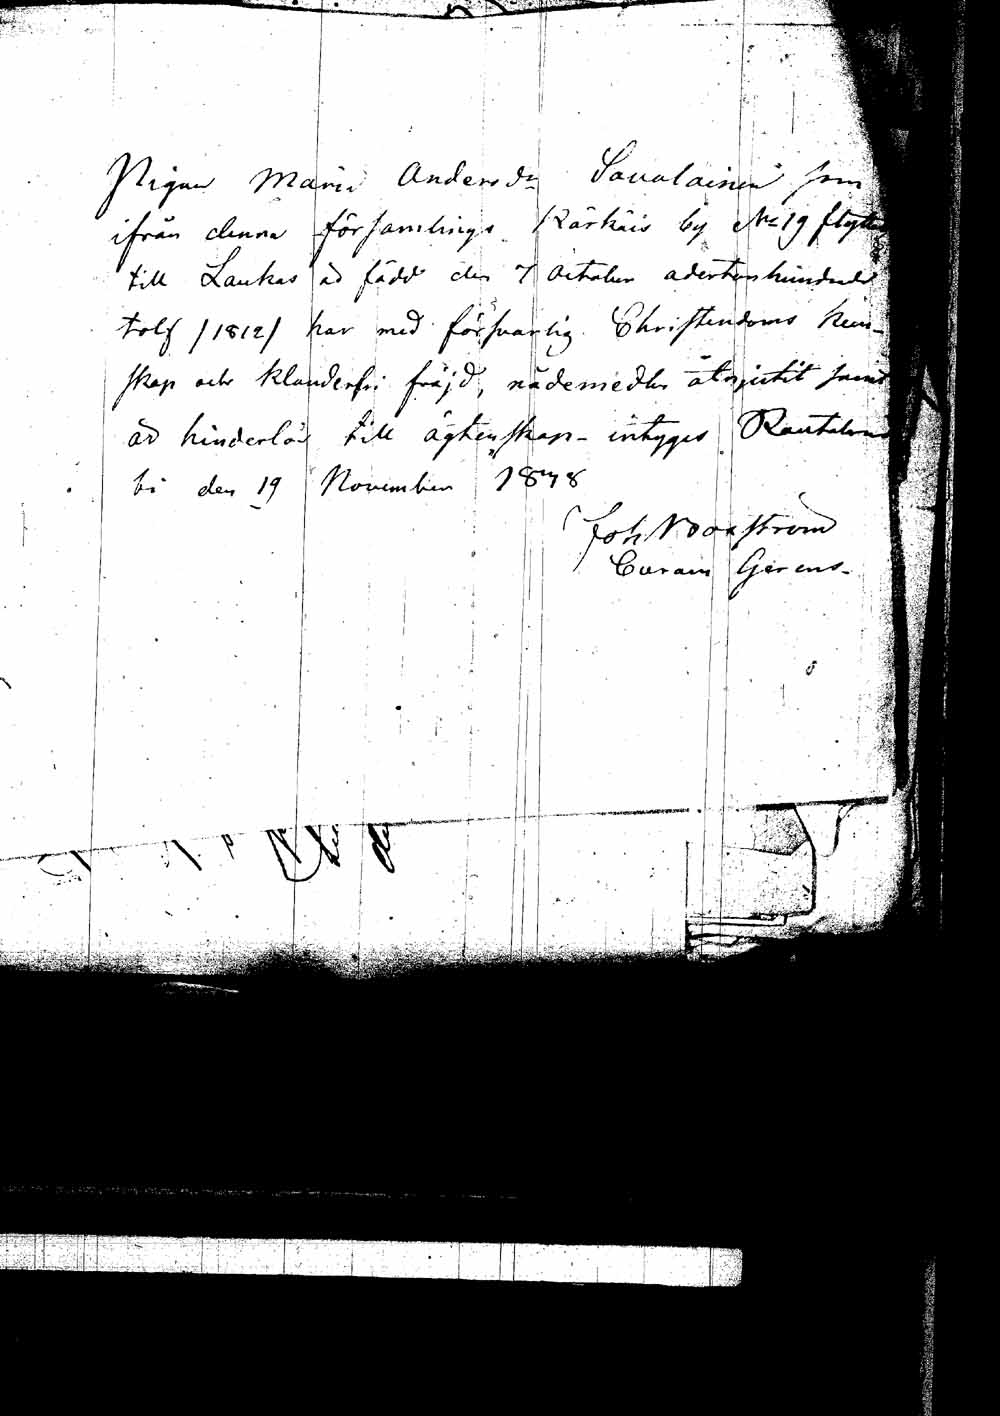 Pigan Maria Andersdr Savolainen som
ifrån denna församlings Kärkäis by No 19 flyttar
till Laukas är född den 7 October adertonhundrade
tolf /1812/ har med försvarlig Christendoms kun-
skap och klanderfri fräjd, nådemedlen åtnjutit samt
är hinderlös till ägtenskap- intyges Rautalam
bi den 19 November 1848
Joh Noraström
Curam Gerens.